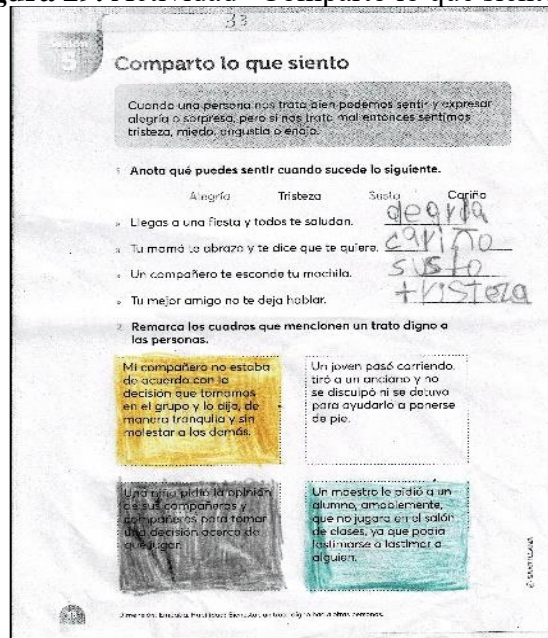 33
5
Comparto lo que siento
Cuando una persona nos trata bien podemos sentir y expresar
alegría o sorpresa, pero si nos trata mal entonces sentimos
tristeza, miedo, angustia o enojo.
Anota qué puedes sentir cuando sucede lo siguiente.
Alegría Tristeza Susto Cariño
Llegas a una fiesta y todos te saludan. alegrıa
Tu mamá te abraza y te dice que te quiere. cariño
Un compañero te esconde tu mochila. susto
Tu mejor amigo no te deja hablar. tristeza
2. Remarca los cuadros que mencionen un trato digno a
las personas.
Mi compañero no estaba
de acuerdo con la
decisión que tomamos
en el grupo y lo dijo, de
manera tranquila y sin
molestar a los demás.
Un joven pasó corriendo,
tiró a un anciano y no
se disculpó ni se detuvo
para ayudarlo a ponerse
de pie.
Una niña pidió la opinión
de sus compañeras y
compañeros para tomar
una decisión acerca de
qué jugar.
Un maestro le pidió a un
alumno, amablemente,
que no jugara en el salón
de clases, ya que podía
lastimarse o lastimar a
alguien.
© SANTILLANA